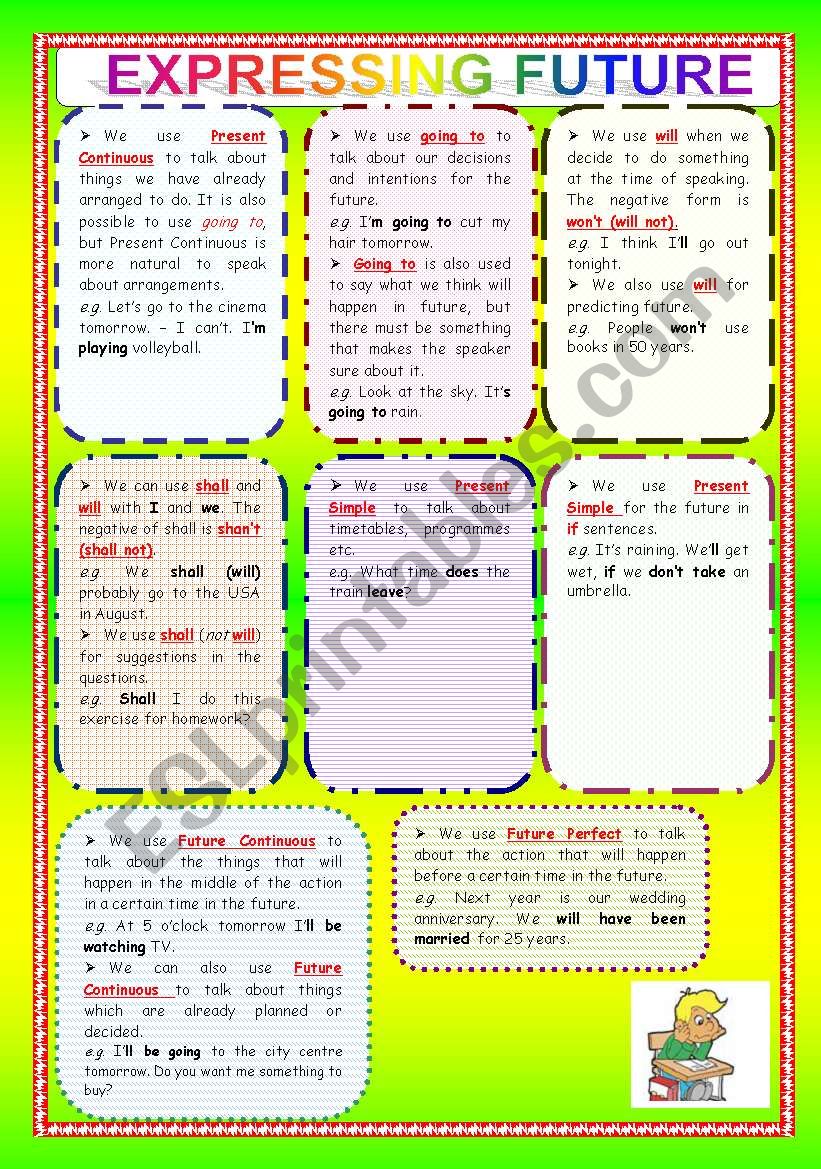 EXPRESSING FUTURE
➢ We use Present
Continuous to talk about
things we have already
arranged to do. It is also
possible to use going to,
but Present Continuous is
more natural to speak
about arrangements.
e.g. Let's go to the cinema
tomorrow. – I can't. I'm
playing volleyball.
➢ We use going to to
talk about our decisions
and intentions for the
future.
e.g. I'm going to cut my
hair tomorrow.
➢ Going to is also used
to say what we think will
happen in future, but
there must be something
that makes the speaker
sure about it.
e.g. Look at the sky. It's
going to rain.
➢ We use will when we
decide to do something
at the time of speaking.
The negative form is
won't (will not).
e.g. I think I'll go out
tonight.
➢ We also use will for
predicting future.
e.g. People won't use
books in 50 years.
➢ We can use shall and
will with I and we. The
negative of shall is shan't
(shall not).
e.g. We shall (will)
probably go to the USA
in August.
➢ We use shall (not will)
for suggestions in the
questions.
e.g. Shall I do this
exercise for homework?
➢ We use Present
Simple to talk about
timetables, programmes
etc.
e.g. What time does the
train leave?
➢ We use Present
Simple for the future in
if sentences.
e.g. It's raining. We'll get
wet, if we don't take an
umbrella.
➢ We use Future Continuous to
talk about the things that will
happen in the middle of the action
in a certain time in the future.
e.g. At 5 o'clock tomorrow I'll be
watching TV.
➢ We can also use Future
Continuous to talk about things
which are already planned or
decided.
e.g. I'll be going to the city centre
tomorrow. Do you want me something to
buy?
➢ We use Future Perfect to talk
about the action that will happen
before a certain time in the future.
e.g. Next year is our wedding
anniversary. We will have been
married for 25 years.
ESLprintables.com